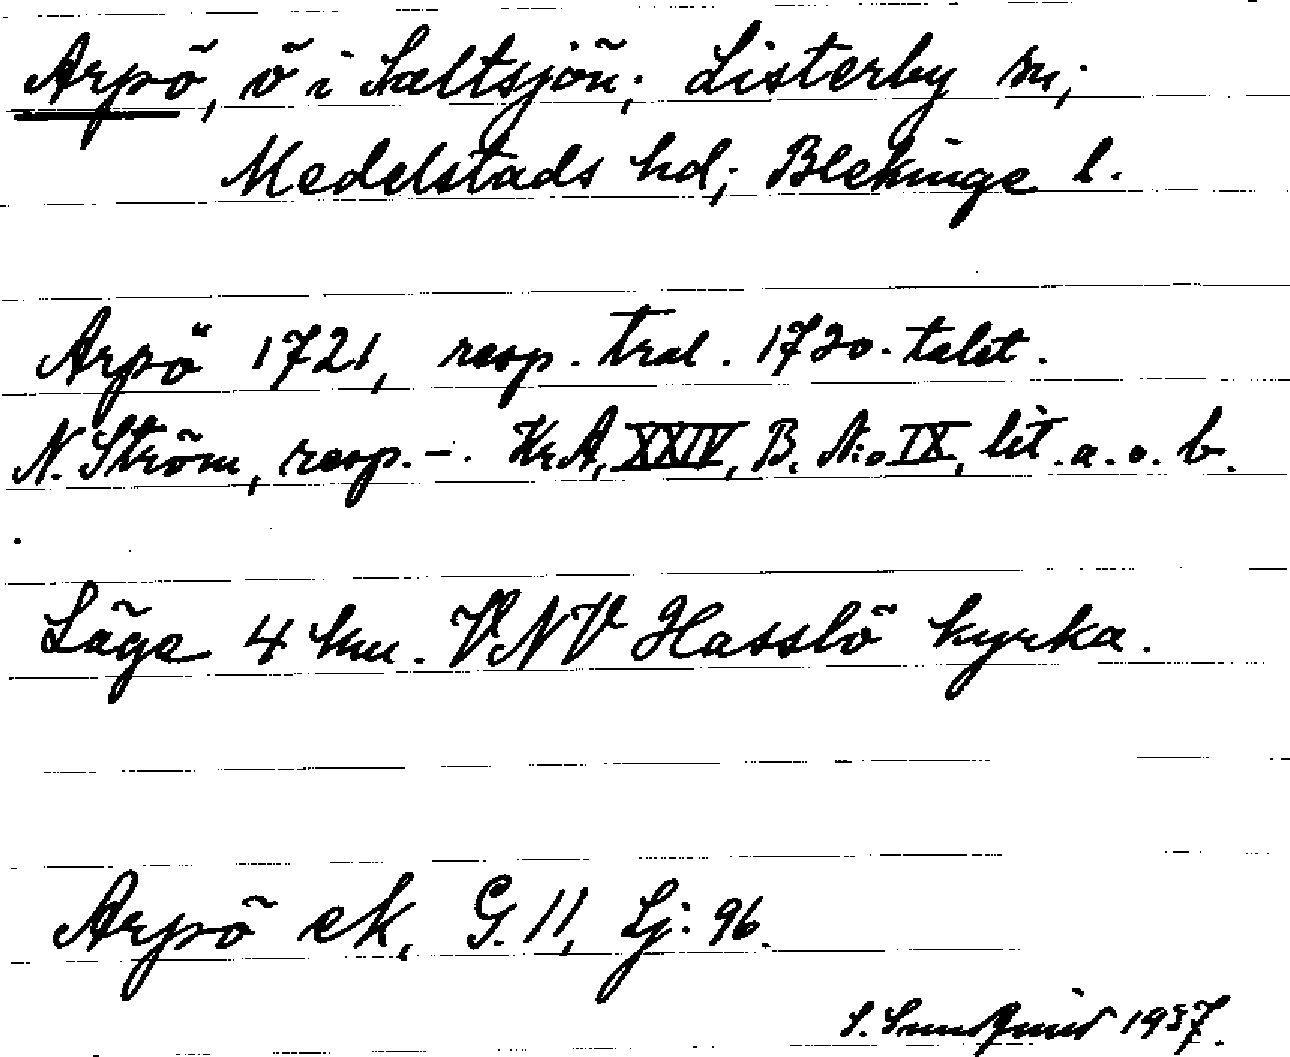 Arpö, ö i Saltsjön; Listerby sn;
Medelstads hd; Blekinge l.
Arpö 1721, resp. trol. 1720-talet.
N. Ström, resp. -. Kr.A, XXIV, B. N:o IX, lit. a. o. b.
Läge 4 km. VNV Hasslö kyrka.
Arpö ek, G. 11, Lj: 96.
1937.